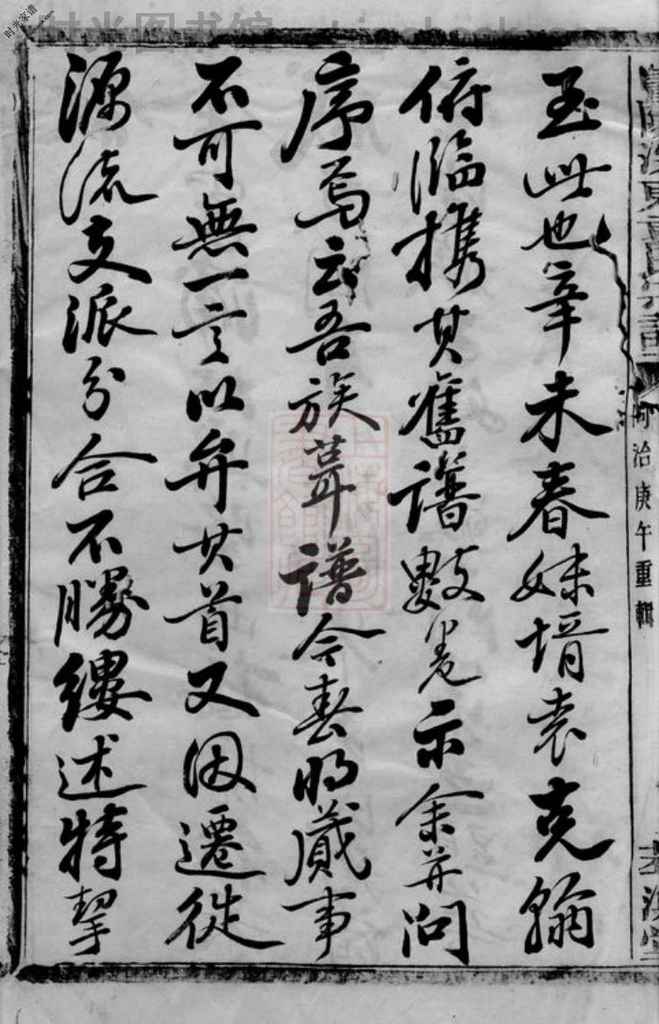 至此也辛未春妹壻袁克翰
俯臨携其舊譜數卷示余并问
序焉云吾族葺譜今春明蕆事
不可無一言以弁其首又因遷徙
源流支派分合不勝縷述特挈
同治庚午重輯
时光家谱